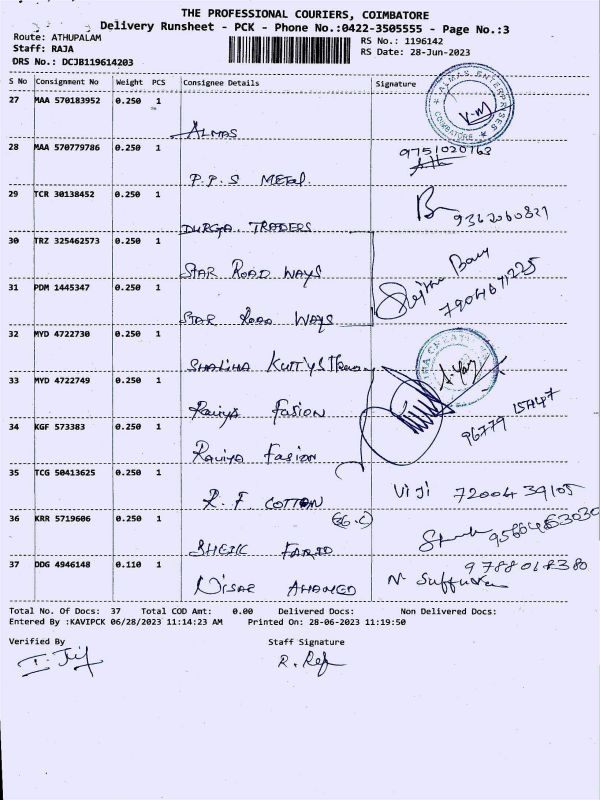 THE PROFESSIONAL COURIERS, COIMBATORE
Delivery Runsheet - PCK - Phone No.:0422-3505555 - Page No.:3
Route: ATHUPALAM
RS No.: 1196142
Staff: RAJA
RS Date: 28-Jun-2023
DRS No.: DCJB119614203
S No Consignment No Weight PCS Consignee Details Signature
27 MAA 570183952 0.250 1
ALMAS
ALMAS ENTERPRISES COIMBATORE
28 MAA 570779786 0.250 1
9751020163
P.P.S METAL.
29 TCR 30138452 0.250 1
9362060821
DURGA TRADERS
30 TRZ 325462573 0.250 1
STAR ROAD WAYS
7904671225
31 PDM 1445347 0.250 1
STAR ROAD WAYS
32 MYD 4722730 0.250 1
SHALIHA KUTTYS
33 MYD 4722749 0.250 1
Raviya Fasion
34 KGF 573383 0.250 1
96779 15747
Raviya Fasion
35 TCG 50413625 0.250 1
R.F COTTON
Viji 7200439105
36 KRR 5719606 0.250 1
SHEIK FARID
9566463030
37 DDG 4946148 0.110 1
9788018380
NISAR AHAMED
Total No. Of Docs: 37 Total COD Amt: 0.00 Delivered Docs: Non Delivered Docs:
Entered By :KAVIPCK 06/28/2023 11:14:23 AM Printed On: 28-06-2023 11:19:50
Verified By Staff Signature